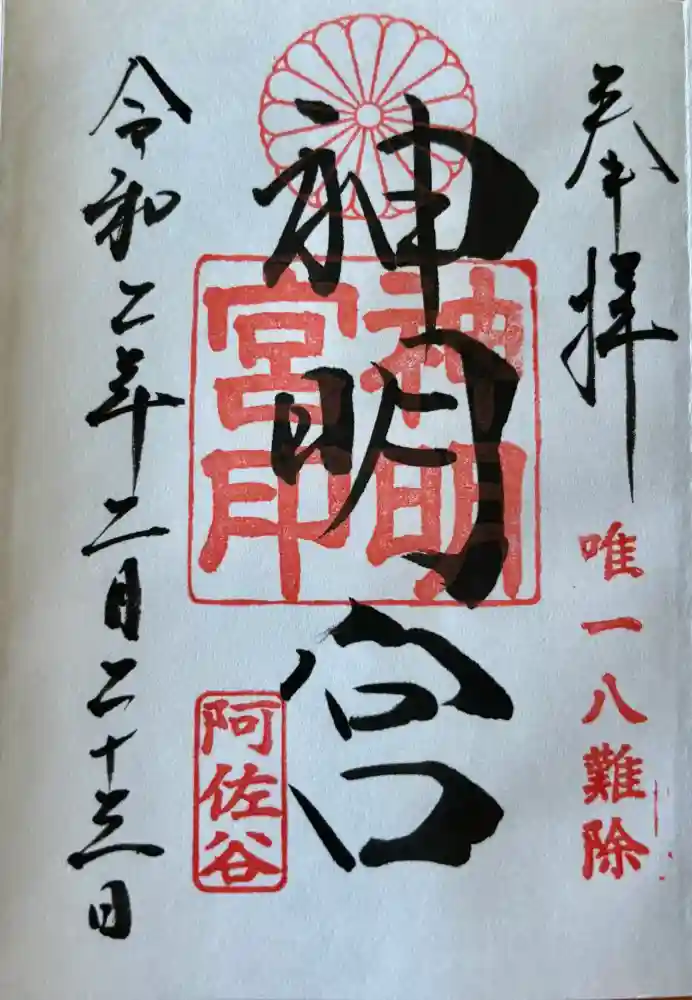 奉拝
唯一八難除
神明宮
神明宮印
阿佐谷
令和二年二月二十三日